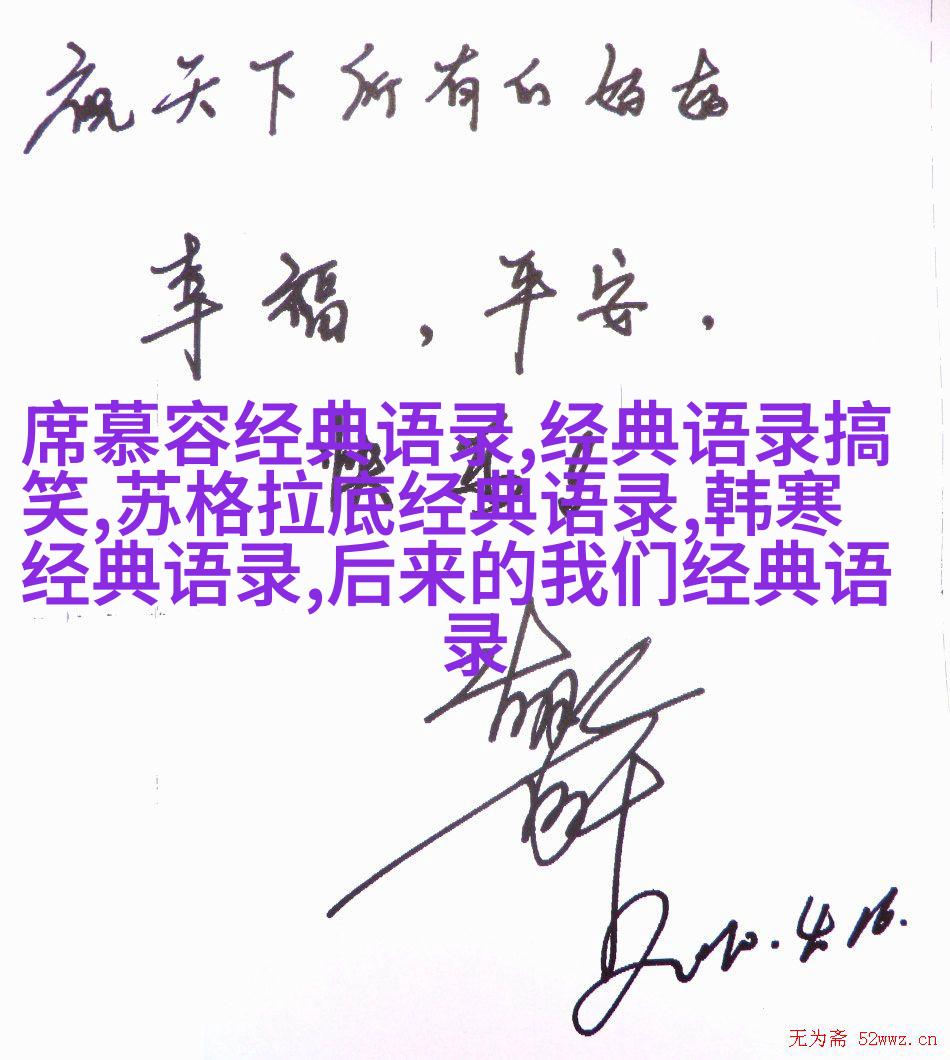 祝天下所有的妈妈
幸福，平安，
席慕容经典语录,经典语录搞
笑,苏格拉底经典语录,韩寒
经典语录,后来的我们经典语
录
2010.4.16.
无为斋 52wwz.cn